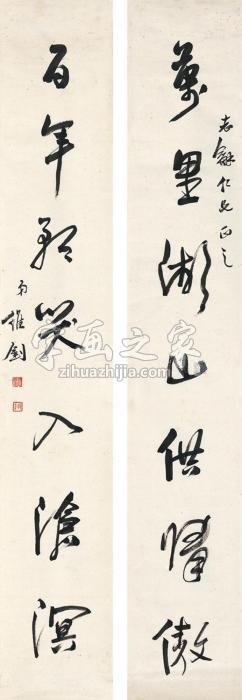 志龢仁兄正之
萬里湖山供嘯傲
百年歌哭入滄溟
弟維釗
字画之家
zihuazhijia.com